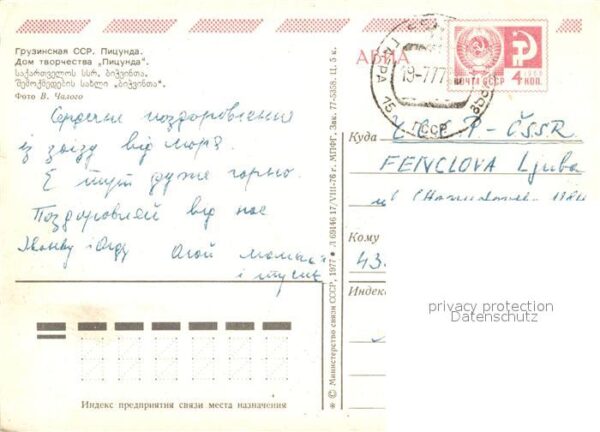 Грузинская ССР. Пицунда.
Дом творчества „Пицунда“.
საქართველოს სსრ, ბიჭვინთა.
შემოქმედების სახლი „ბიჭვინთა“.
Фото В. Чалого
АВИА
ПОЧТА СССР 4 КОП.
ГАГРА
19-777
ГССР
Сердечне поздоровлення
із заїзду від моря.
Є тут дуже гарно.
Поздоровляй від нас
і Олду
Агой
і
Куда
СССР - ČSSR
FENCLOVA Ljuba
Кому
43.
Индекс
privacy protection
Datenschutz
* © Министерство связи СССР, 1977 • Л 69146 17/VIII-76 г., МПФГ, Зак. 77-5358. Ц. 5 к.
Индекс предприятия связи места назначения